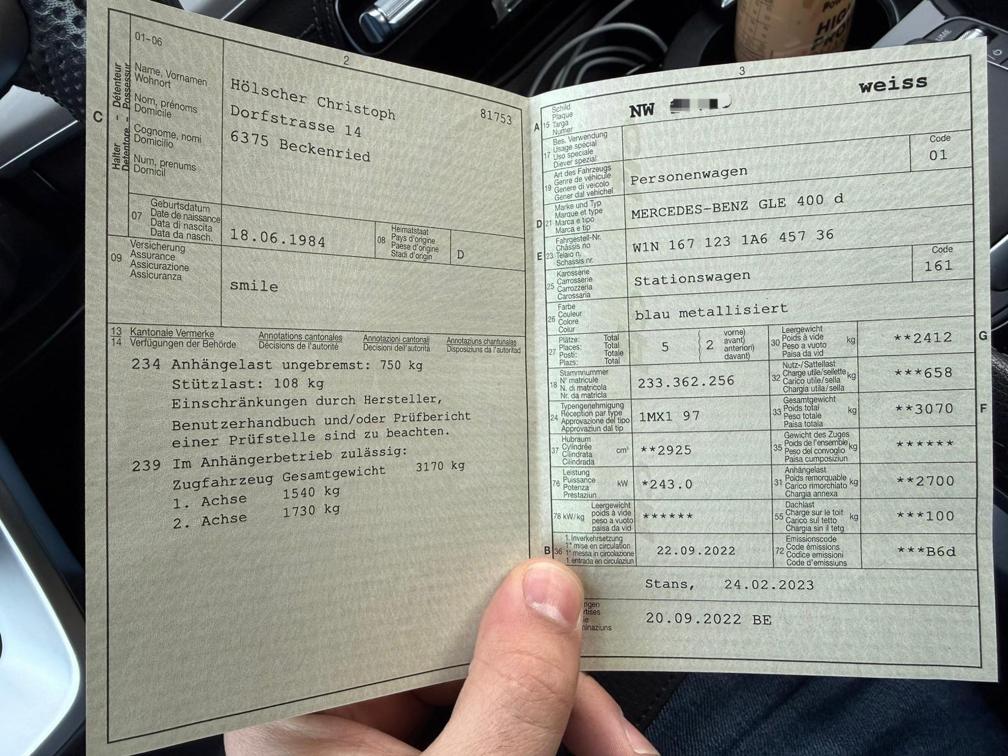 2
01-06
C
Halter – Détenteur
Detentore – Possessur
Name, Vornamen
Wohnort
Nom, prénoms
Domicile
Cognome, nomi
Domicilio
Num, prenums
Domicil
Hölscher Christoph 81753
Dorfstrasse 14
6375 Beckenried
07 Geburtsdatum
Date de naissance
Data di nascita
Data da nasch.
18.06.1984
08 Heimatstaat
Pays d'origine
Paese d'origine
Stadi d'origin
D
09 Versicherung
Assurance
Assicurazione
Assicuranza
smile
13 Kantonale Vermerke Annotations cantonales Annotazioni cantonali Annotaziuns chantunalas
14 Verfügungen der Behörde Décisions de l'autorité Decisioni dell'autorità Disposiziuns da l'autoritad
234 Anhängelast ungebremst: 750 kg
Stützlast: 108 kg
Einschränkungen durch Hersteller,
Benutzerhandbuch und/oder Prüfbericht
einer Prüfstelle sind zu beachten.
239 Im Anhängerbetrieb zulässig:
Zugfahrzeug Gesamtgewicht 3170 kg
1. Achse 1540 kg
2. Achse 1730 kg
3
A 15 Schild
Plaque
Targa
Numer
NW weiss
17 Bes. Verwendung
Usage spécial
Uso speciale
Diever spezial
19 Art des Fahrzeugs
Genre de véhicule
Genere di veicolo
Gener dal vehichel
Personenwagen
Code
01
D 21 Marke und Typ
Marque et type
Marca e tipo
Marca e tip
MERCEDES-BENZ GLE 400 d
E 23 Fahrgestell-Nr.
Châssis no
Telaio n.
Schassis nr.
W1N 167 123 1A6 457 36
25 Karosserie
Carrosserie
Carrozzeria
Carossaria
Stationswagen
Code
161
26 Farbe
Couleur
Colore
Colur
blau metallisiert
27 Plätze: Total
Places: Total
Posti: Totale
Plazs: Total
5
2
vorne)
avant)
anteriori)
davant)
30 Leergewicht
Poids à vide
Peso a vuoto
Paisa da vid
kg
**2412
G
18 Stammnummer
N° matricule
N. di matricola
Nr. da matricla
233.362.256
32 Nutz-/Sattellast
Charge utile/sellette
Carico utile/sella
Chargia utila/sella
kg
***658
24 Typengenehmigung
Réception par type
Approvazione del tipo
Approvaziun dal tip
1MX1 97
33 Gesamtgewicht
Poids total
Peso totale
Paisa totala
kg
**3070
F
37 Hubraum
Cylindrée
Cilindrata
Cilindrada
cm³
**2925
35 Gewicht des Zuges
Poids de l'ensemble
Peso del convoglio
Paisa cumposiziun
kg
******
76 Leistung
Puissance
Potenza
Prestaziun
kW
*243.0
31 Anhängelast
Poids remorquable
Carico rimorchiato
Chargia annexa
kg
**2700
78 kW/kg Leergewicht
poids à vide
peso a vuoto
paisa da vid
******
55 Dachlast
Charge sur le toit
Carico sul tetto
Chargia sin il tetg
kg
***100
B 36 1. Inverkehrsetzung
1re mise en circulation
1a messa in circolazione
1. entrada en circulaziun
22.09.2022
72 Emissionscode
Code émissions
Codice emissioni
Code d'emissiuns
***B6d
Stans, 24.02.2023
20.09.2022 BE